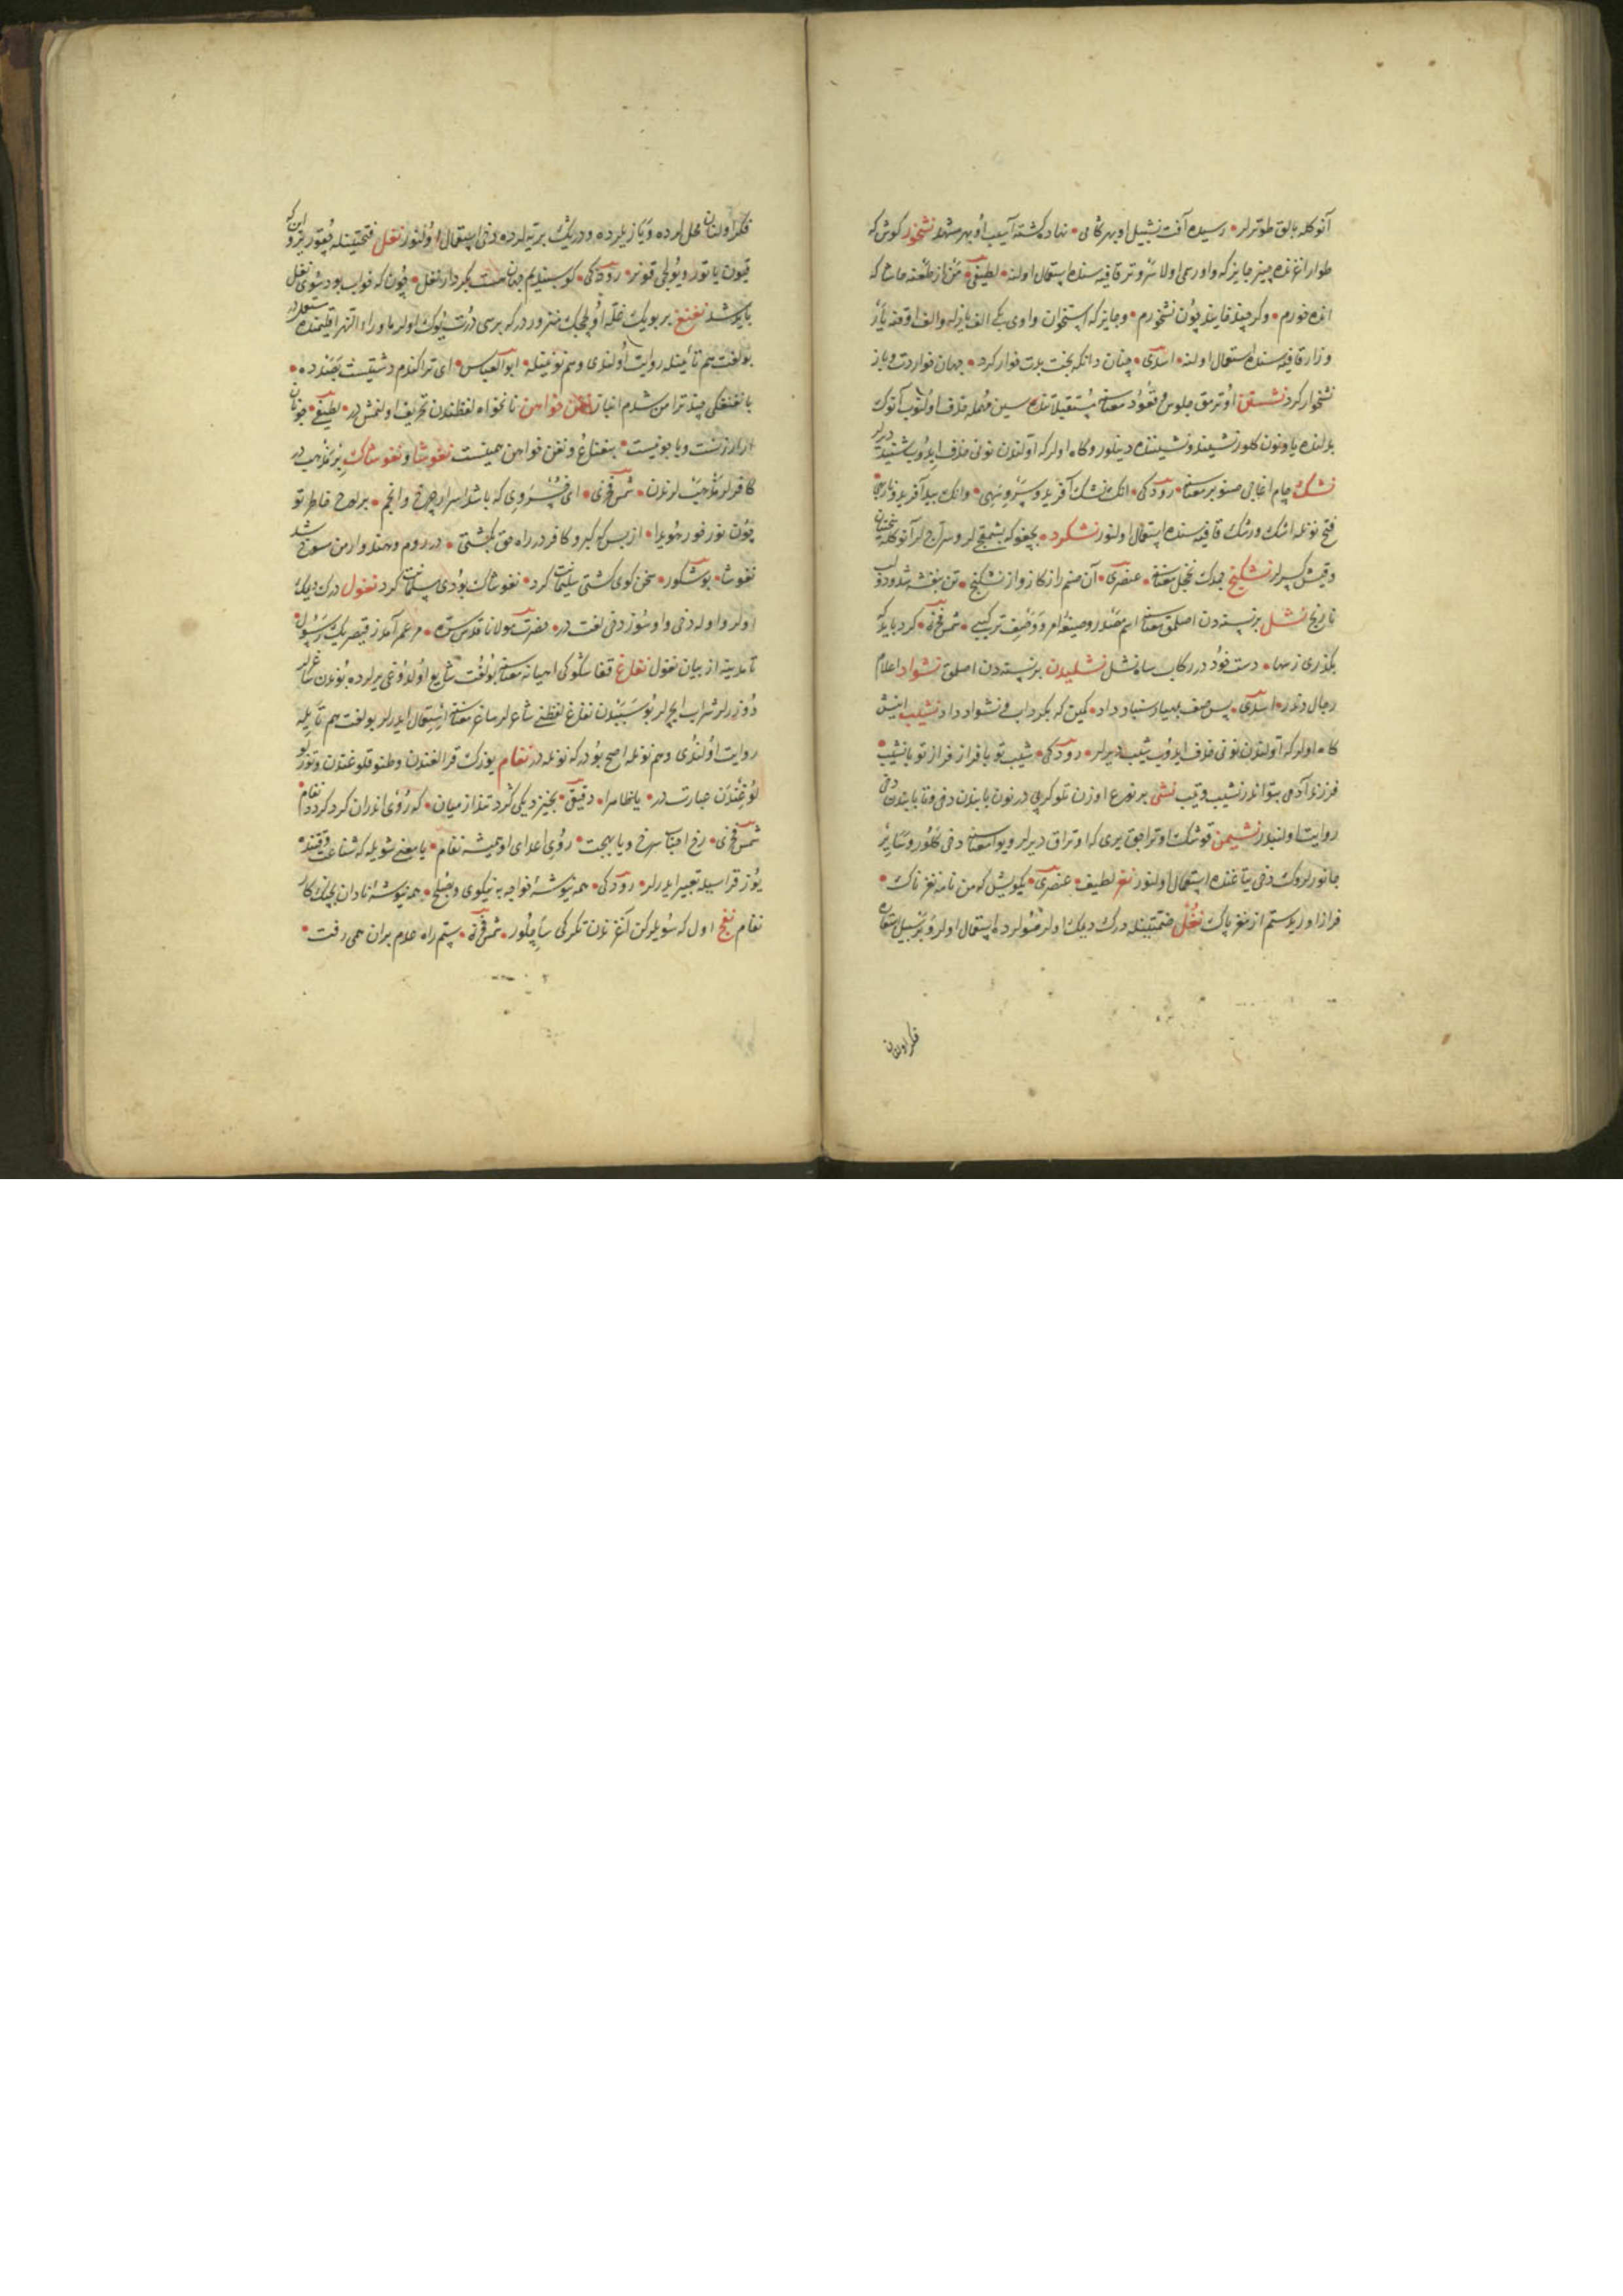 آنوكله بالق طوترلر • رسیده آفت نشپیل او بهر كامی • نهاده كشته آسیب او بهر مشهد نشخور كوش كه
طوار اغزنده چینر جایزكه واو رسمی اولا سر و تر قافیه سنده استعمال اولنه • لطیفی • من از طعنه
خورم • وكر چند خایند چون نشخورم • و جایزكه استخوان واوی كبی الف یازیله والف اوقنه یاز
و زار قافیه سنده استعمال اولنه • اسدی • چنان دانكه بخت بدت خوار كرد • جهان خوردت و باز
نشخوار كرد نشستن اوترمق جلوس و قعود معناسنه مستقبلاتنده سین مهمله حذف اولنوب آنوك
بدلنده یا و نون كلور نشیند و نشیننده دینلور و كاه اولركه اولندن نونی حذف ایدوب شنید دیرلر
نشك چام اغاجی صنوبر معناسنه • رودكی • انك نشك آفرید و سرو سهی • وانك بید آفرید و نار و بهی
فتح نونله اشك و رشك قافیه سنده استعمال اولنور نشكرد • بچغو كه بشمقجیلر و سراجلر آنوكله سختیان
و قیش كسرلر نشكنج چمدك نخجل معناسنه • عنصری • آن صنم را ز كاز و از نشكنج • تن بنفشه شد و دو لب
نارنج نشل بر نسنه دن اصلمق معناسنه اسم مصدر و صیغه امر و وصف تركیبی • شمس فخری • كرد باید كه
بكذری ز سها • دست خود در ركاب شاه نشل نشلیدن بر نسنه دن اصلمق نشواد اعلام
رجال دندر • اسدی • پس صف بهیاد سنباد داد • كمین كه بكرداب نشواد داد نشیب اینش
كاه اولركه اولندن نونی حذف ایدوب شیب دیرلر • رودكی • شیب تو با فراز فراز تو با نشیب •
فرزند آدمی بتو اندر نشیب و تیب نشی بر نوع اوزن تلو كرپی در نون یا بندن دخی و تا بابندن دخی
روایت اولنبدر نشیمن قوشك اوتراجق یری كه اوتراق دیرلر و یوا معناسنه دخی كلور و سایر
جانورلروك دخی یتاغنده استعمال اولنور نغز لطیف • عنصری • یكویش كه من نامه نغز ناك •
فراز آوریدستم از مغز پاك نغل ضمتینله درك دیمك اولر منولرده استعمال اولر و بر سبیل استعاره
فكر اولنان
فكر اولنان محل لرده و یازیلرده و دریك بر تپه لرده دخی استعمال اولنور نغل فتحتینله چقور یر و این كه
قیون یاتور و یولجی قونر • رودكی • كوسبندیم جهان هست بكردار نغل • چون كه خواب بود سوی نغل
باید شد نغنغ بر بویك غله اولچك منزور دركه برسی درت یوك اولر ماوراء النهر اقلیمنده مستعملدر
بو لغت هم تائینله روایت اولندی و هم نونینله • ابو العباس • ای تو را كندم دشتیست بسنده •
با نغنغكی چند ترا من شدم انباز نغن خواهن نانخواه لفظندن تحریف اولنمش در • لطیفی • چو نان
ار ارزنست و یا جونیست • بنغناغ و نغن خواهن همنیست نغوشا و نغوشاك بر مذهب در
كافرلر مذهبلرندن • شمس فخری • ای خسروی كه باشد اسرار چرخ و انجم • بر لوح خاطر تو
چون نور خور هویدا • از بس كه كبر و كافر در راه حق بكشتی • در روم و هند و ارمن منسوخ شد
نغوشا • بوشكور • سخن كوی كشتی سلیمانت كرد • نغوشاك بودی مسلمانت كرد نغول درك دیمك
اولر واو له دخی واوسوز دخی لغت در • حضرت مولانا قدس سره • مر عمر آمد ز قیصر یك رسول •
تا مدینه از بیان نغول نغاغ قفا سكوكی احیانه معناسنه بو لغت شایع اولدوغی یرلرده بوندن ساغرلر
دوزرلر شراب ایچرلر بو سببدن نغاغ لفظنی شاعرلر ساغر معناسنه استعمال ایدرلر بو لغت هم تائله
روایت اولندی و هم نونله اصح بودركه نونله در نغام یوزك قرالغندن و طنوقلوغندن و توز لو
لوغندن عبارت در • یا نظامرا • دقیقی • بخیزد یكی كرد تند از میان • كه روی اندران كرد كردد نغام •
شمس فخری • رخ احبات سرخ و با بهجت • روی اعدای او همیشه نغام • یا معنی شویله كه شناعت وقتنده
یوز قراسیله تعبیر ایدرلر • رودكی • همه نیوشه خواجه به نیكوی و بصلح • همه نیوشه نادان بجنك كار
نغام نفج اول كه سویلركن آغزندن تكركی ساچلور • شمس فخری • ستم راه عدم بران همی رفت •